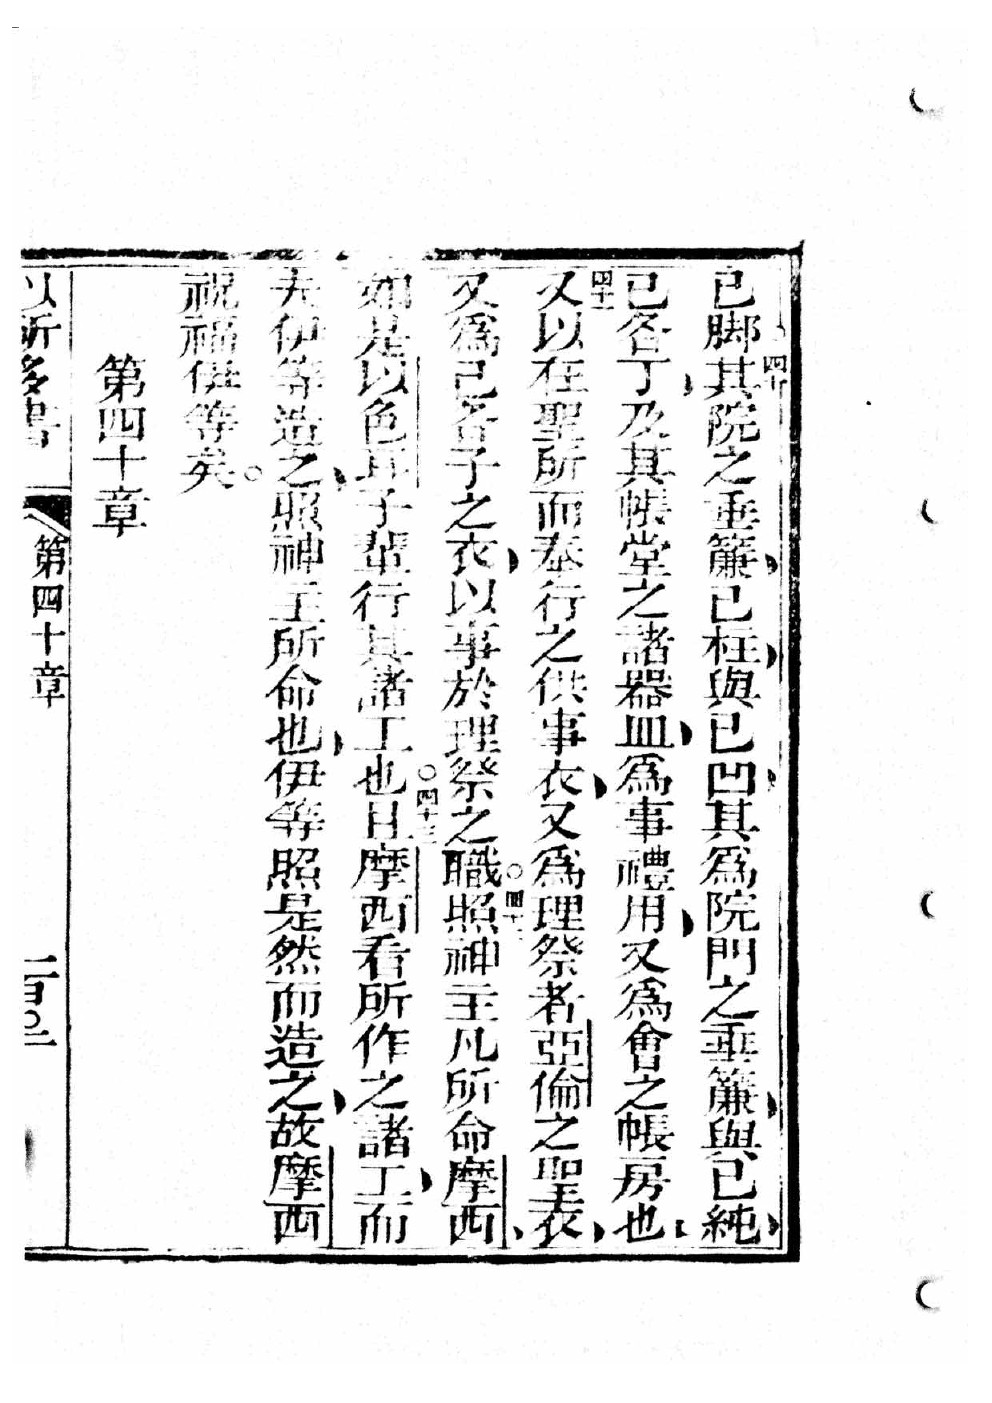 已脚其院之垂簾已柱與已凹其為院門之垂簾與已純
四十
已各丁及其帳堂之諸器皿為事禮用又為會之帳房也
四十一
又以在聖所而奉行之供事衣又為理祭者亞倫之聖衣
又為己各子之衣以事於理祭之職照神主凡所命摩西
四十二
如是以色耳子輩行其諸工也且摩西看所作之諸工而
四十三
夫伊等造之照神主所命也伊等照是然而造之故摩西
祝福伊等矣。
第四十章
以所多書
第四十章